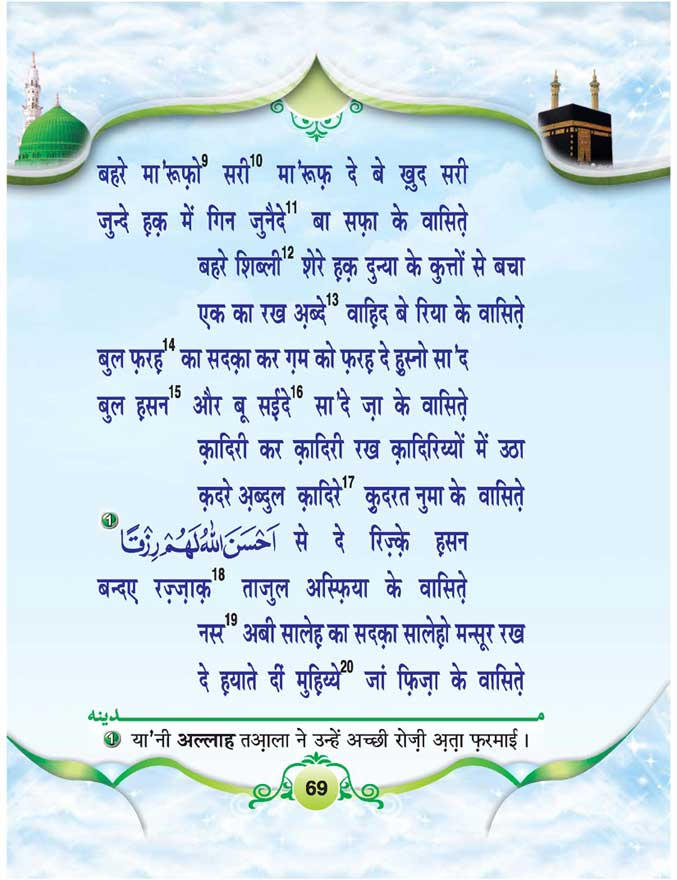 बहरे मा'रूफ़ो⁹ सरी¹⁰ मा'रूफ़ दे बे ख़ुद सरी
जुन्दे ह़क़ में गिन जुनैदे¹¹ बा सफ़ा के वासित़े
बहरे शिब्ली¹² शेरे ह़क़ दुन्या के कुत्तों से बचा
एक का रख अ़ब्दे¹³ वाह़िद बे रिया के वासित़े
बुल फ़रह़¹⁴ का सदक़ा कर ग़म को फ़रह़ दे हु़स्नो सा'द
बुल ह़सन¹⁵ और बू सई़दे¹⁶ सा'दे ज़ा के वासित़े
क़ादिरी कर क़ादिरी रख क़ादिरिय्यों में उठा
क़दरे अ़ब्दुल क़ादिरे¹⁷ क़ुदरत नुमा के वासित़े
اَحْسَنَ اللّٰهُ لَهُمْ رِزْقًا ① से दे रिज़्क़े ह़सन
बन्दए रज़्ज़ाक़¹⁸ ताजुल अस्फ़िया के वासित़े
नस्र¹⁹ अबी सालेह़ का सदक़ा सालेह़ो मन्सूर रख
दे ह़याते दीं मुह़िय्ये²⁰ जां फ़िज़ा के वासित़े
مـــدينه
① या'नी अल्लाह तआ़ला ने उन्हें अच्छी रोज़ी अ़त़ा फ़रमाई ।
69